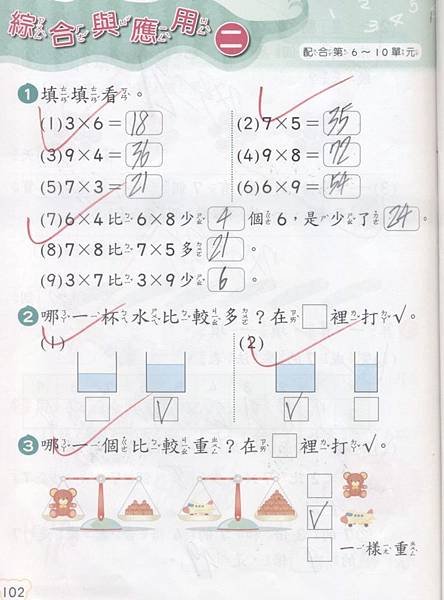 綜合與應用 二
配合第 6～10 單元
1 填填看。
(1) 3×6=18 (2) 7×5=35
(3) 9×4=36 (4) 9×8=72
(5) 7×3=21 (6) 6×9=54
(7) 6×4比 6×8少 4 個 6，是少了 24。
(8) 7×8比 7×5多 21。
(9) 3×7比 3×9少 6。
2 哪一杯水比較多？在□裡打✓。
(1) (2)
□ ✓ ✓ □
3 哪一個比較重？在□裡打✓。
□
✓
□ 一樣重
102